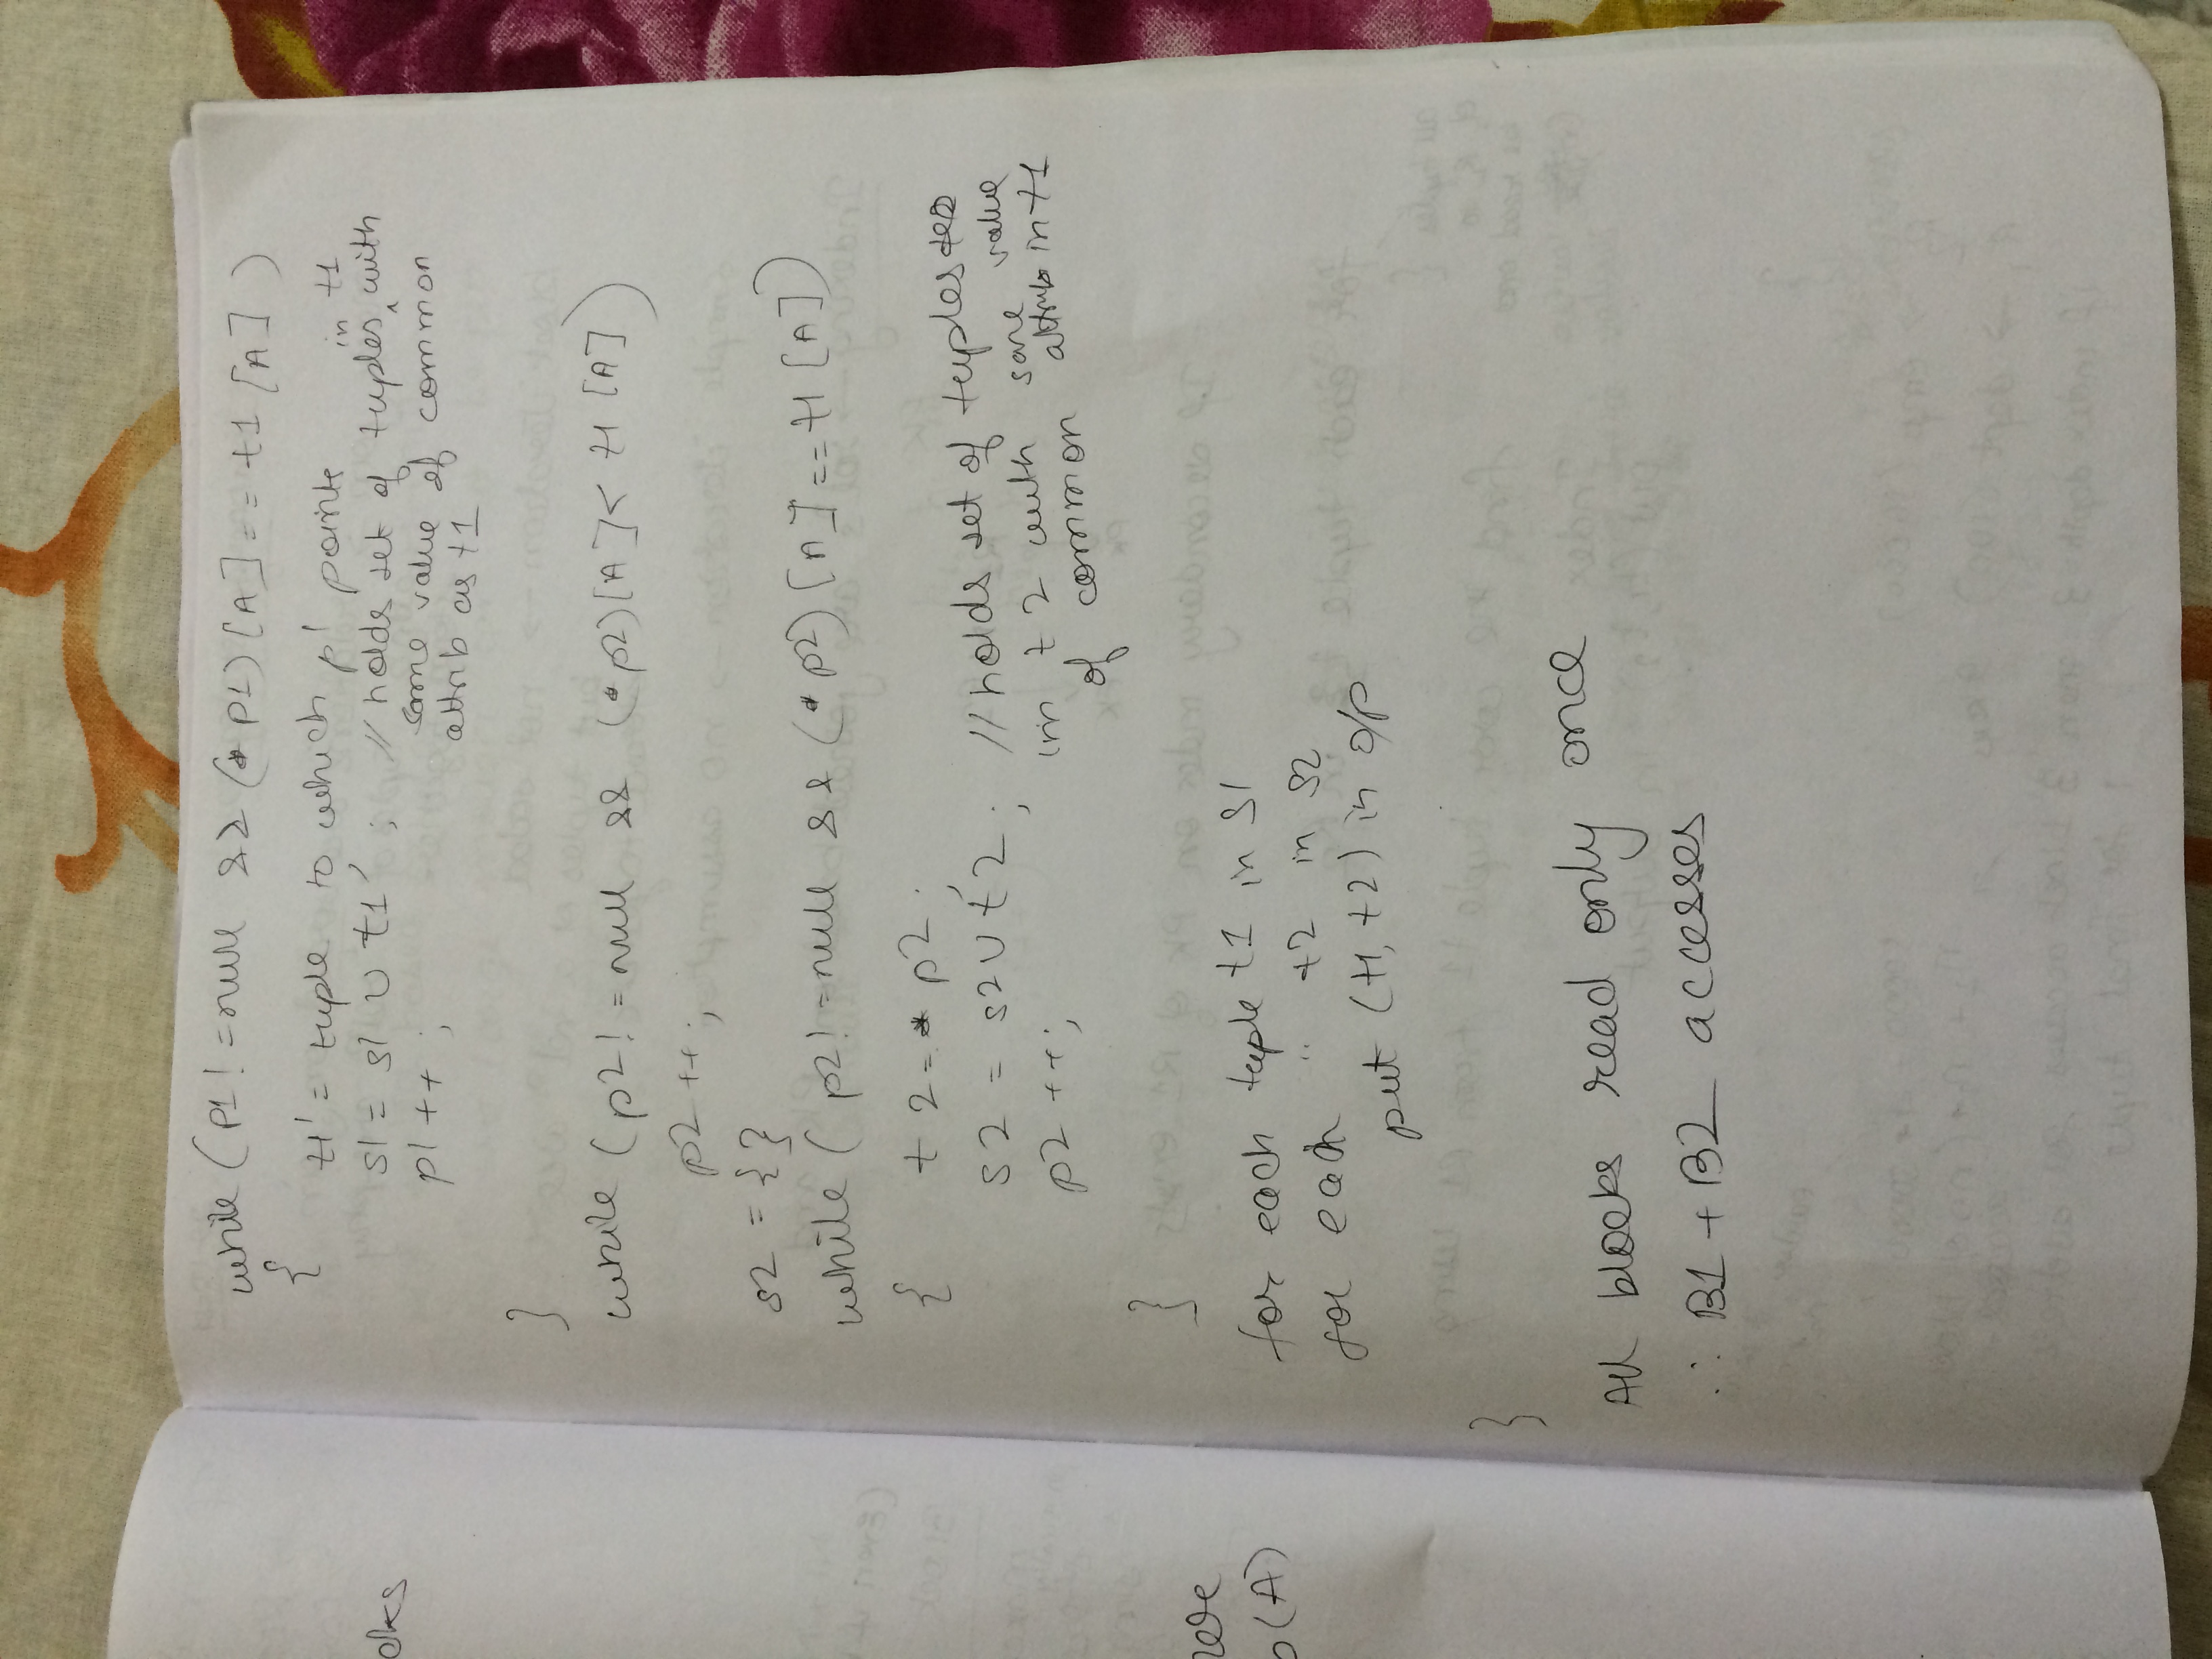 cks
here
p(A)
while (p1 != null && (* p1) [A] == t1 [A] )
{
t1' = tuple to which p1 points
s1 = s1 ∪ t1' ; // holds set of tuples in t1 with
p1 ++ ; same value of common
attrib as t1
}
while ( p2 != null && (* p2) [A] < t1 [A] )
p2 ++ ;
s2 = { }
while ( p2 != null && (* p2) [A] == t1 [A] )
{ t2 = * p2 ;
s2 = s2 ∪ t2 ; // holds set of tuples
in t2 with same value
p2 ++ ; of common attrib in t1
}
for each tuple t1 in s1
for each " t2 in s2
put (t1, t2) in o/p
}
All blocks read only once
∴ B1 + B2 accesses